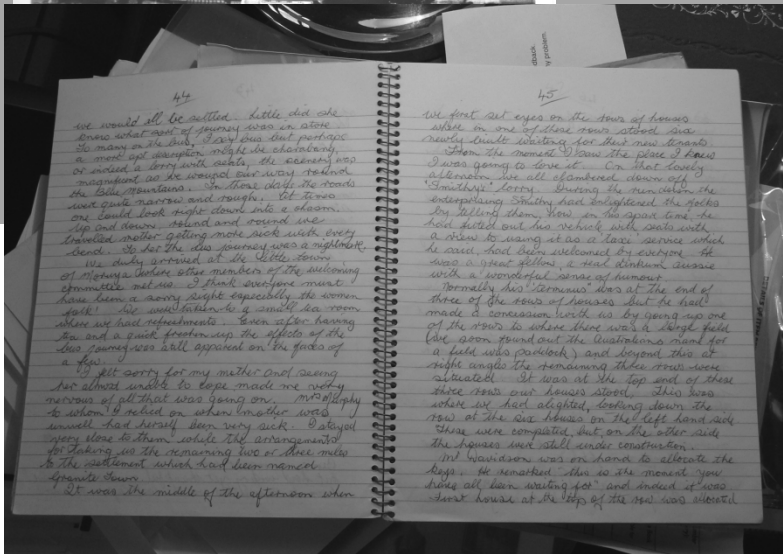 dback.
y problem.
44
we would all be settled. Little did she
know what sort of journey was in store.
To many on the bus, I say bus but perhaps
a more apt description might be charabang,
or indeed a lorry with seats, the scenery was
magnificent as we wound our way round
the Blue Mountains. In those days the roads
were quite narrow and rough. At times
one could look right down into a chasm.
Up and down, round and round we
travelled mother getting more sick with every
bend. To her the bus journey was a nightmare.
We duly arrived at the little town
of Moruya where other members of the welcoming
committee met us. I think everyone must
have been a sorry sight especially the women
folk! We were taken to a small tea room
where we had refreshments. Even after having
tea and a quick freshen up the effects of the
bus journey was still apparent on the faces of
a few.
I felt sorry for my mother and seeing
her almost unable to cope made me very
nervous of all that was going on. Mrs Murphy
to whom I relied on when mother was
unwell had herself been very sick. I stayed
very close to them while the arrangements
for taking us the remaining two or three miles
to the settlement which had been named
Granite Town.
It was the middle of the afternoon when
45
we first set eyes on the rows of houses
where in one of these rows stood six
newly built waiting for their new tenants.
From the moment I saw the place I knew
I was going to love it. On that lovely
afternoon we all clambered down off
"Smithy's" lorry. During the run down the
enterprising Smithy had enlightened the folks
by telling them, how in his spare time, he
had fitted out his vehicle with seats with
a view to using it as a taxi service which
he said, had been welcomed by everyone. He
was a great fellow, a real dinkum aussie
with a wonderful sense of humour.
Normally his "terminus" was at the end of
three of the rows of houses but he had
made a concession with us by going up one
of the rows to where there was a large field
(we soon found out the Australians name for
a field was paddock) and beyond this at
right angles the remaining three rows were
situated. It was at the top end of these
three rows our houses stood. This was
where we had alighted, looking down the
row at the six houses on the left hand side.
These were completed but, on the other side
the houses were still under construction.
Mr Davidson was on hand to allocate the
keys. He remarked "this is the moment you
have all been waiting for" and indeed it was
First house at the top of the row was allocated